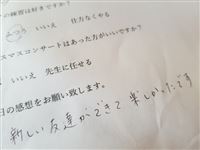 の練習は好きですか?
いいえ 仕方なくやる
スマスコンサートはあった方がいいですか?
いいえ 先生に任せる
日の感想をお願い致します。
新しい友達ができて 楽しかったです